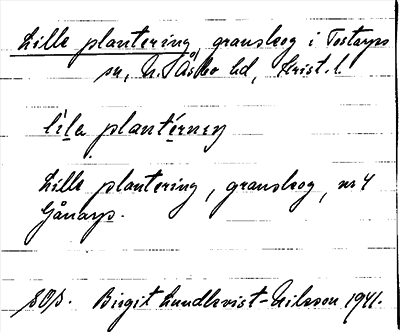 Lille plantering, granskog i Tostarps
sn, N. Åsbo hd, Krist. l.
lìla plantérneŋ
Lille plantering, granskog, nr 4
Gånarp.
SOP. Birgit Lundkvist-Nilsson 1941.